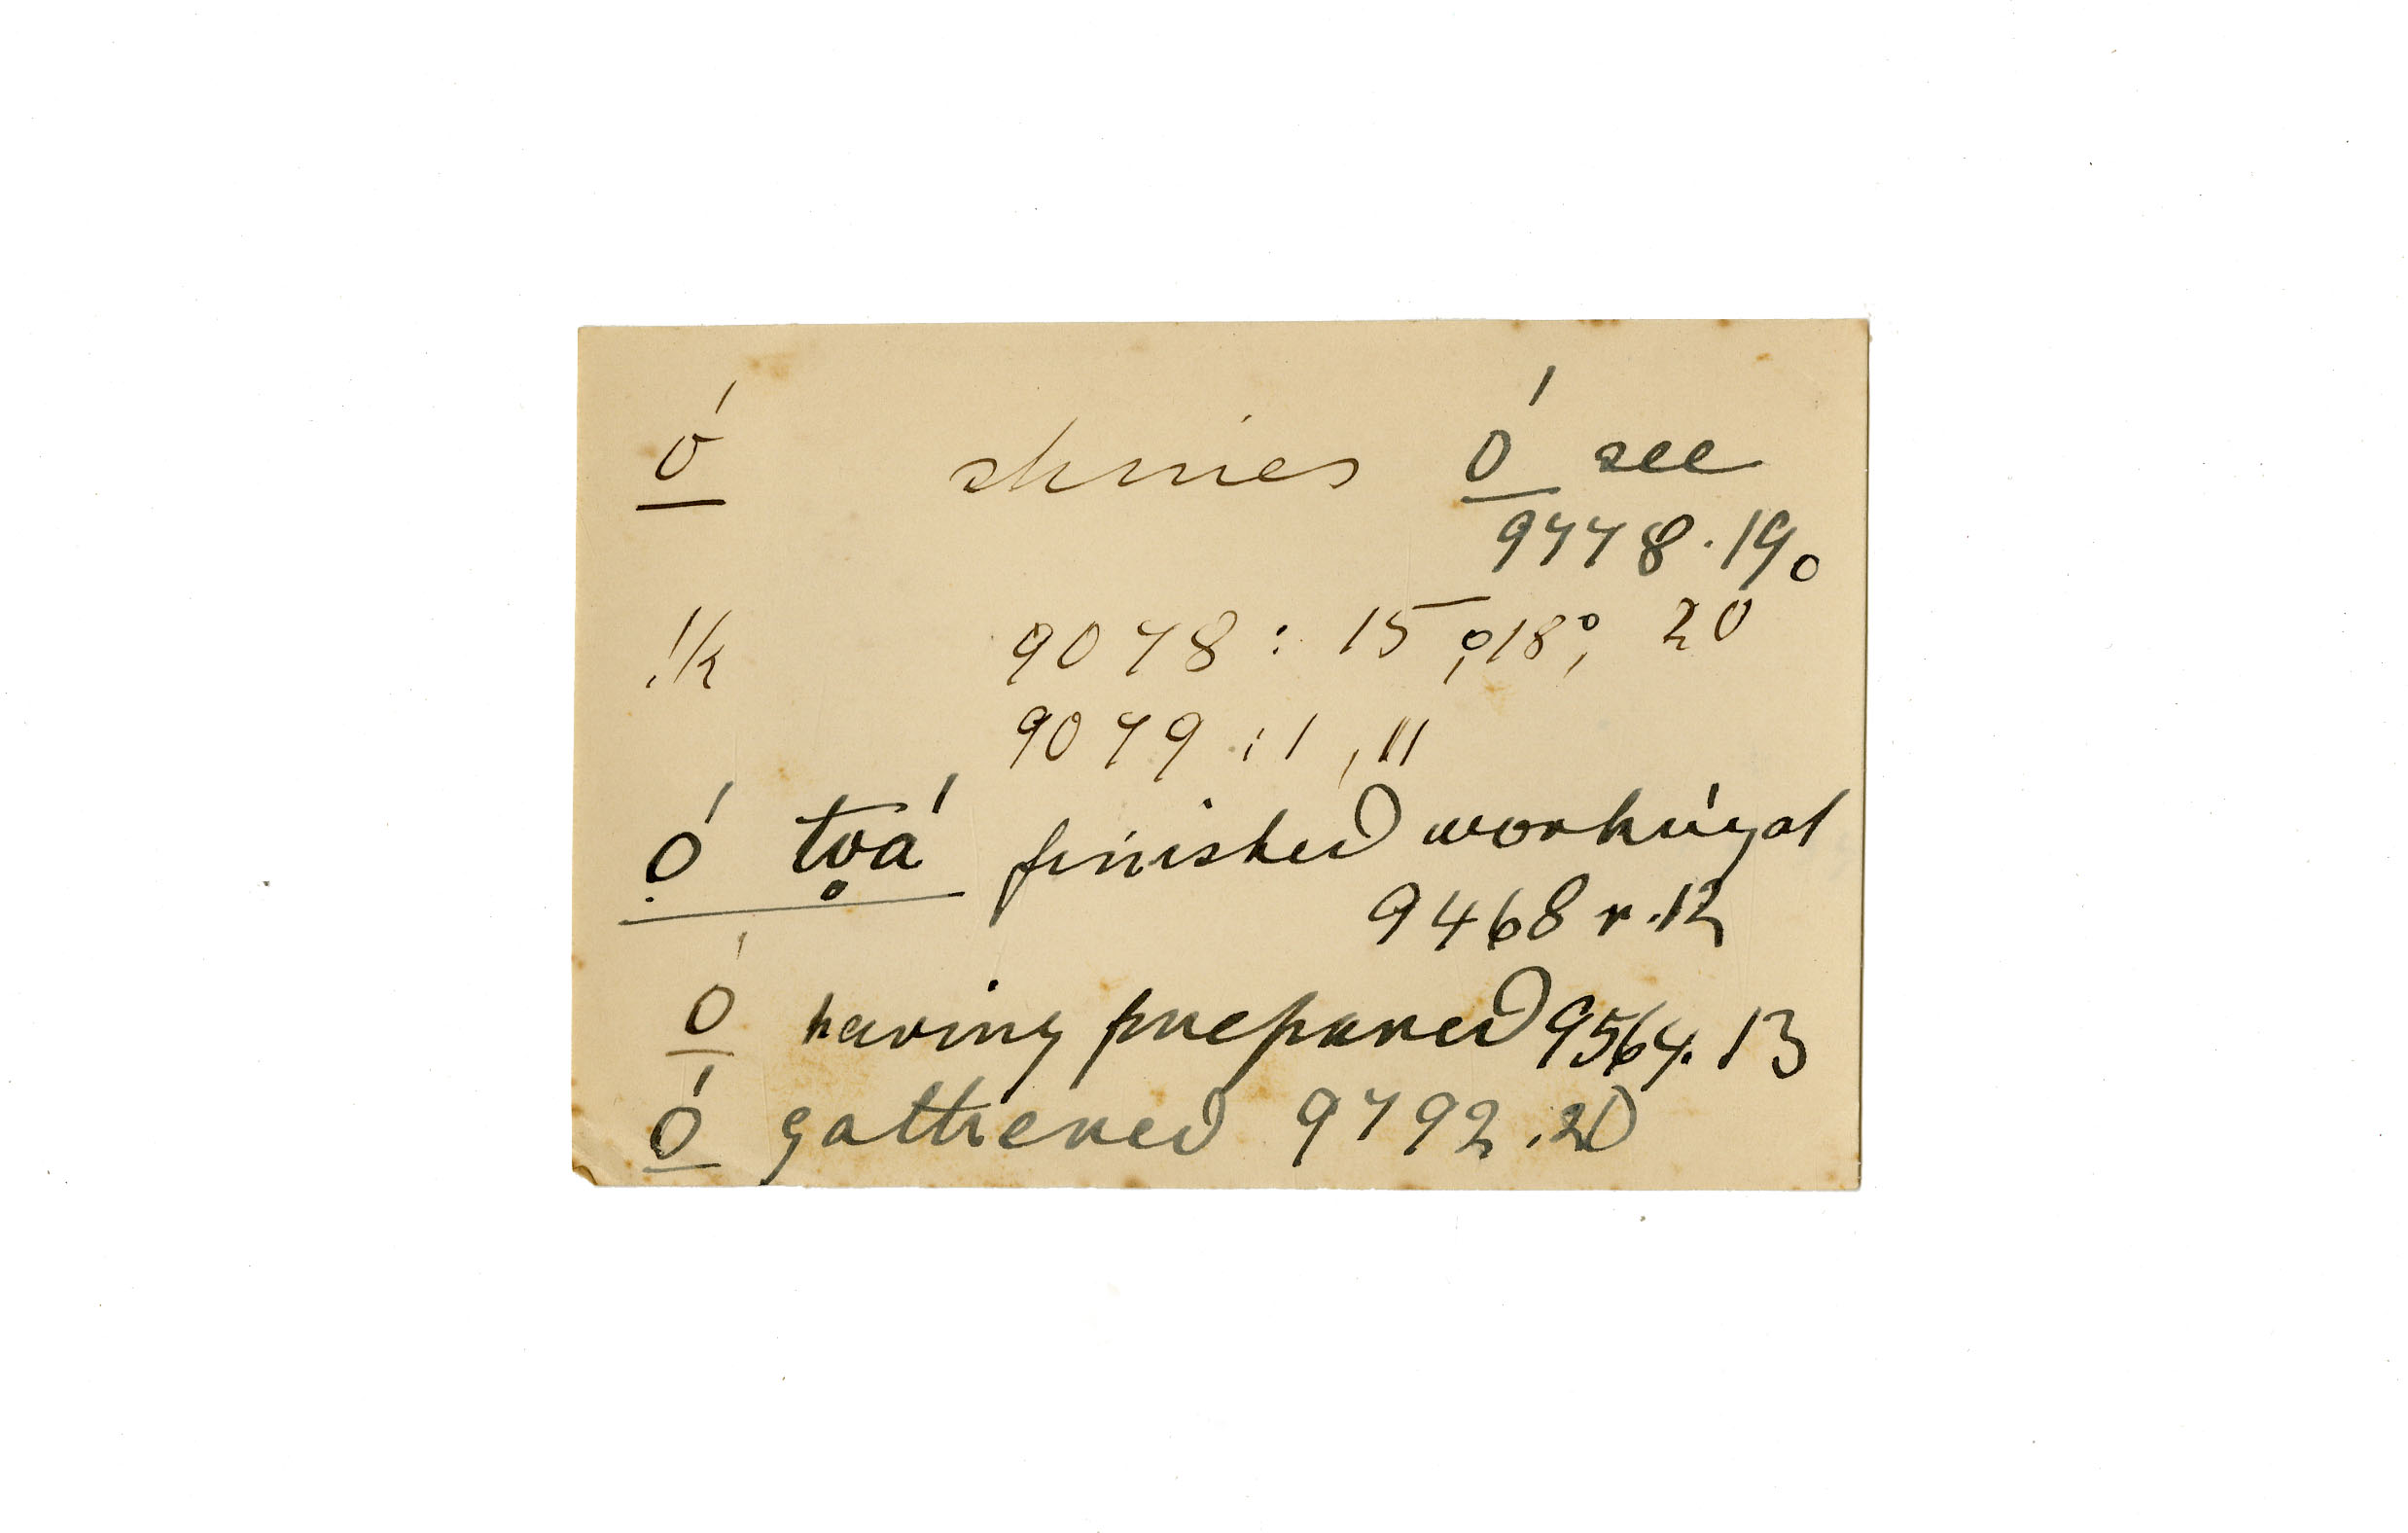 ó shines ó see
9778.19o
!k 9078: 15o, 18o, 20
9079:1, 11
ọ́ tvá finished working at
9468 r.12
ó having prepared 9564.13
ó gathered 9792.20